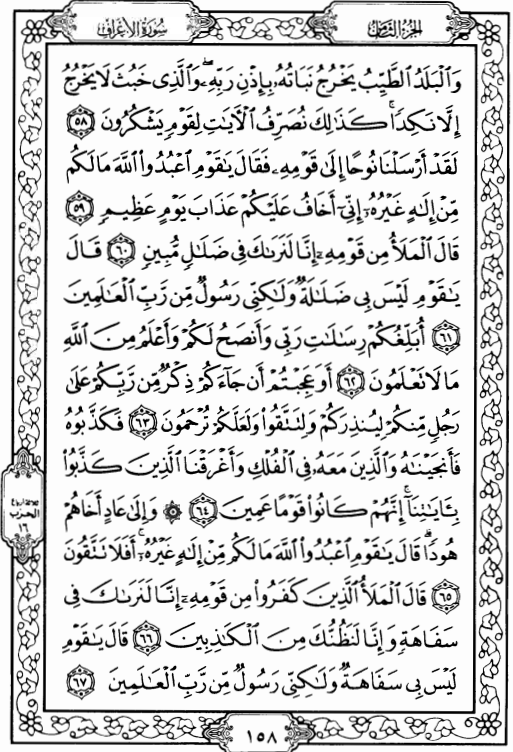 سُورَةُ الأَعْرَافِ
الجُزْءُ الثَّامِنُ
وَٱلْبَلَدُ ٱلطَّيِّبُ يَخْرُجُ نَبَاتُهُۥ بِإِذْنِ رَبِّهِۦ ۖ وَٱلَّذِى خَبُثَ لَا يَخْرُجُ
إِلَّا نَكِدًا ۚ كَذَٰلِكَ نُصَرِّفُ ٱلْـَٔايَٰتِ لِقَوْمٍ يَشْكُرُونَ ٥٨
لَقَدْ أَرْسَلْنَا نُوحًا إِلَىٰ قَوْمِهِۦ فَقَالَ يَٰقَوْمِ ٱعْبُدُوا۟ ٱللَّهَ مَا لَكُم
مِّنْ إِلَٰهٍ غَيْرُهُۥٓ إِنِّىٓ أَخَافُ عَلَيْكُمْ عَذَابَ يَوْمٍ عَظِيمٍ ٥٩
قَالَ ٱلْمَلَأُ مِن قَوْمِهِۦٓ إِنَّا لَنَرَىٰكَ فِى ضَلَٰلٍ مُّبِينٍ ٦٠ قَالَ
يَٰقَوْمِ لَيْسَ بِى ضَلَٰلَةٌ وَلَٰكِنِّى رَسُولٌ مِّن رَّبِّ ٱلْعَٰلَمِينَ
٦١ أُبَلِّغُكُمْ رِسَٰلَٰتِ رَبِّى وَأَنصَحُ لَكُمْ وَأَعْلَمُ مِنَ ٱللَّهِ
مَا لَا تَعْلَمُونَ ٦٢ أَوَعَجِبْتُمْ أَن جَآءَكُمْ ذِكْرٌ مِّن رَّبِّكُمْ عَلَىٰ
رَجُلٍ مِّنكُمْ لِيُنذِرَكُمْ وَلِتَتَّقُوا۟ وَلَعَلَّكُمْ تُرْحَمُونَ ٦٣ فَكَذَّبُوهُ
فَأَنجَيْنَٰهُ وَٱلَّذِينَ مَعَهُۥ فِى ٱلْفُلْكِ وَأَغْرَقْنَا ٱلَّذِينَ كَذَّبُوا۟
بِـَٔايَٰتِنَآ ۚ إِنَّهُمْ كَانُوا۟ قَوْمًا عَمِينَ ٦٤ ۞ وَإِلَىٰ عَادٍ أَخَاهُمْ
هُودًا ۗ قَالَ يَٰقَوْمِ ٱعْبُدُوا۟ ٱللَّهَ مَا لَكُم مِّنْ إِلَٰهٍ غَيْرُهُۥٓ ۚ أَفَلَا تَتَّقُونَ
٦٥ قَالَ ٱلْمَلَأُ ٱلَّذِينَ كَفَرُوا۟ مِن قَوْمِهِۦٓ إِنَّا لَنَرَىٰكَ فِى
سَفَاهَةٍ وَإِنَّا لَنَظُنُّكَ مِنَ ٱلْكَٰذِبِينَ ٦٦ قَالَ يَٰقَوْمِ
لَيْسَ بِى سَفَاهَةٌ وَلَٰكِنِّى رَسُولٌ مِّن رَّبِّ ٱلْعَٰلَمِينَ ٦٧
ثلاثة أرباع
الحزب
١٦
١٥٨